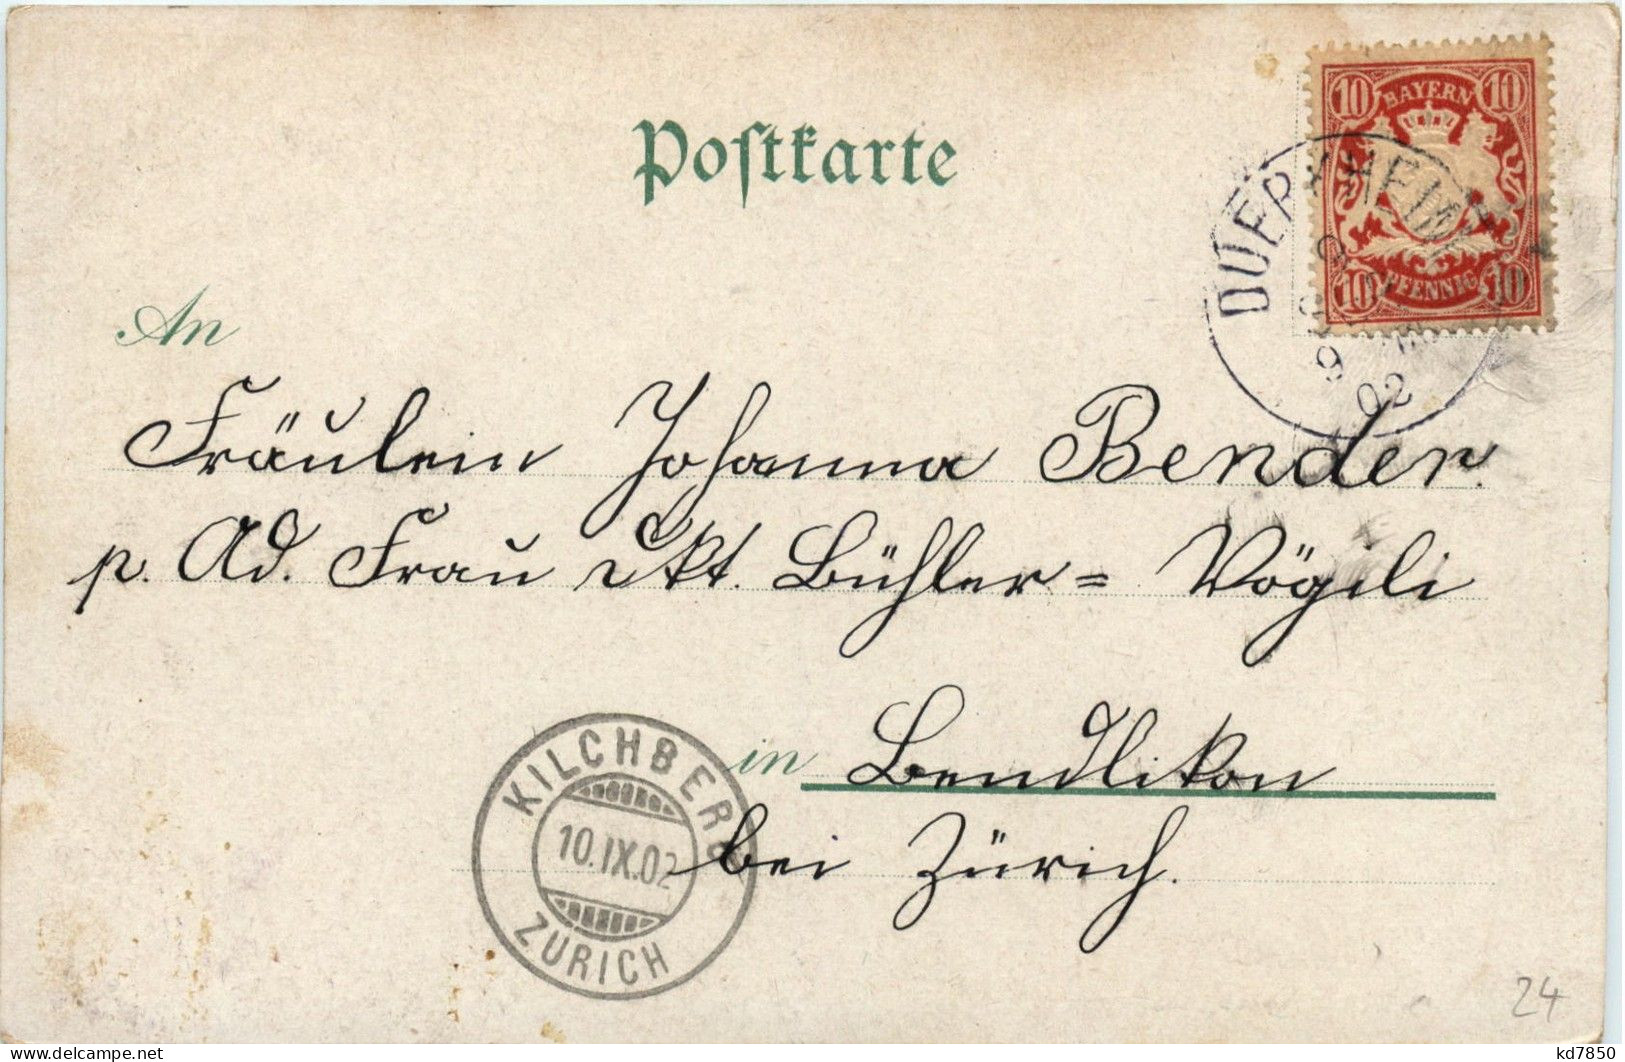 Postkarte
10 BAYERN 10
10 PFENNIG 10
DUERKHEIM
9
02
An
Fräulein Johanna Bender.
p. Ad. Frau Bühler = Vögeli
in Bendlikon
bei Zürich.
KILCHBERG
10.IX.02
ZÜRICH
24
kd7850